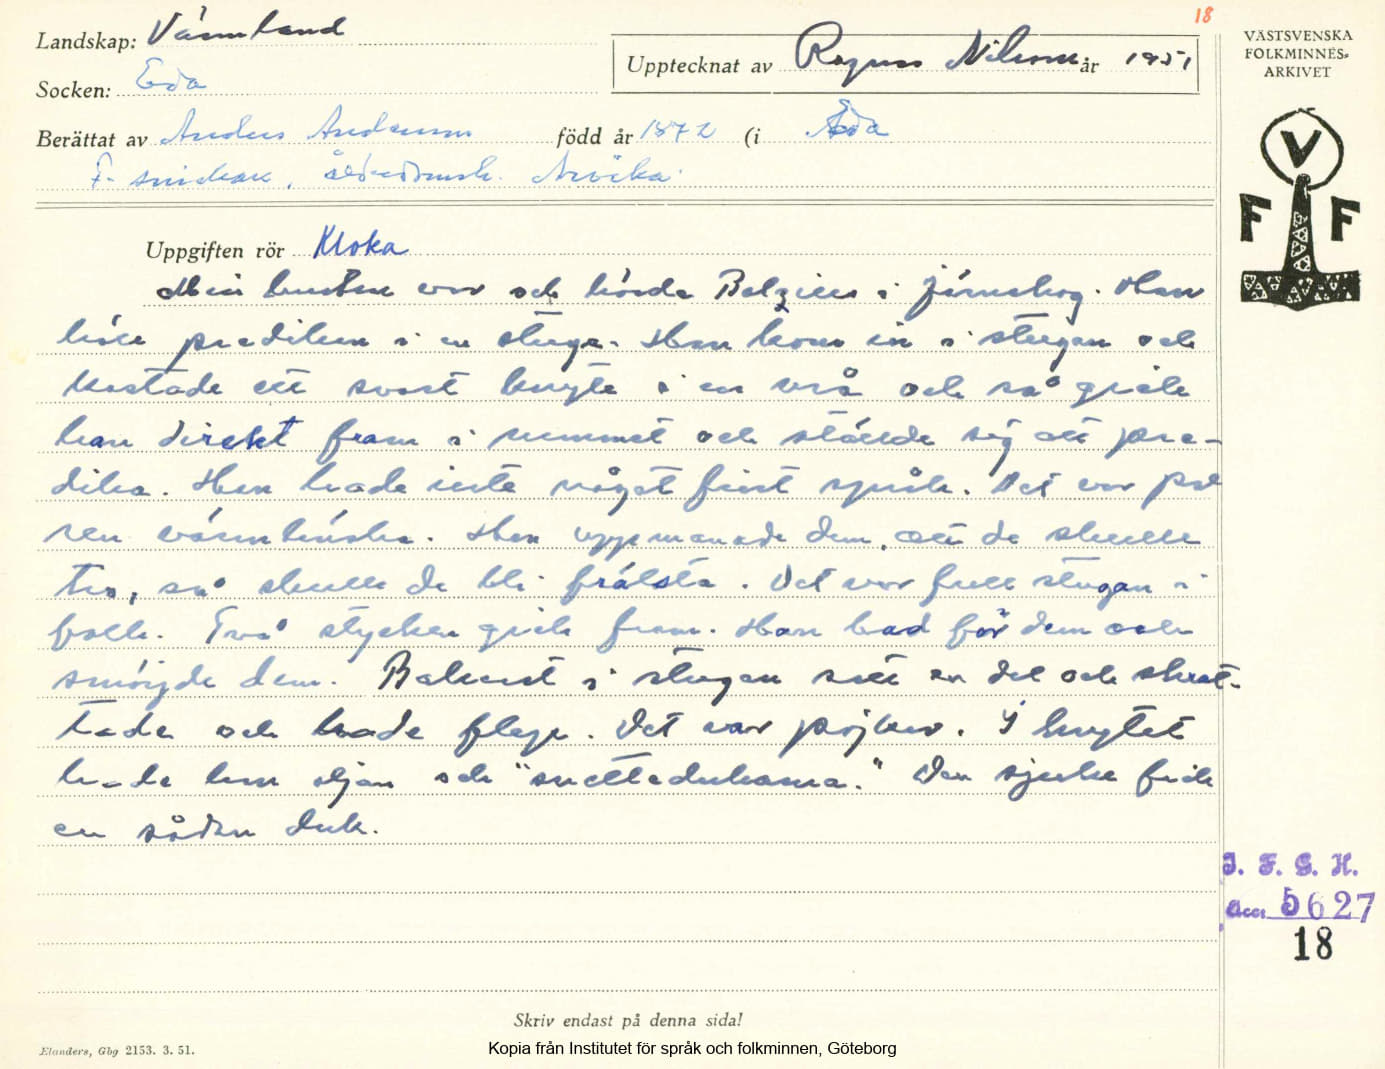 18
Landskap: Värmland
Upptecknat av Ragnar Nilsson år 1951
VÄSTSVENSKA
FOLKMINNES-
ARKIVET
Socken: Eda
Berättat av Anders Andersson född år 1872 (i Eda
F. snickare, ålderdomsh. Arvika.
V
F F
Uppgiften rör Kloka
Min hustru var och hörde Belgien i Järnskog. Han
höll predikan i en stuga. Han kom in i stugan och
kastade ett svart knyte i en vrå och så gick
han direkt fram i rummet och ställde sig att pre-
dika. Han hade inte något fint språk. Det var på
ren värmländska. Han uppmanade dem, att de skulle
tro, så skulle de bli frälsta. Det var full stugan i
folk. Två stycken gick fram. Han bad för dem och
smörjde dem. Bakerst i stugan satt en del och skrat-
tade och hade flaga. Det var pojkar. I knytet
hade han oljan och "svettedukarna." Den sjuke fick
en sådan duk.
I. F. G. H.
Acc. 5627
18
Skriv endast på denna sida!
Elanders, Gbg 2153. 3. 51.
Kopia från Institutet för språk och folkminnen, Göteborg